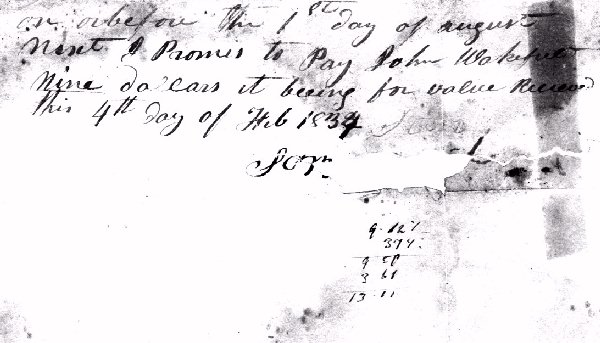 on or before the 1st day of august
Next I Promis to Pay John
Nine dollars it being for value Received
this 4th day of Feb 1834
9 12½
9 50
13 11